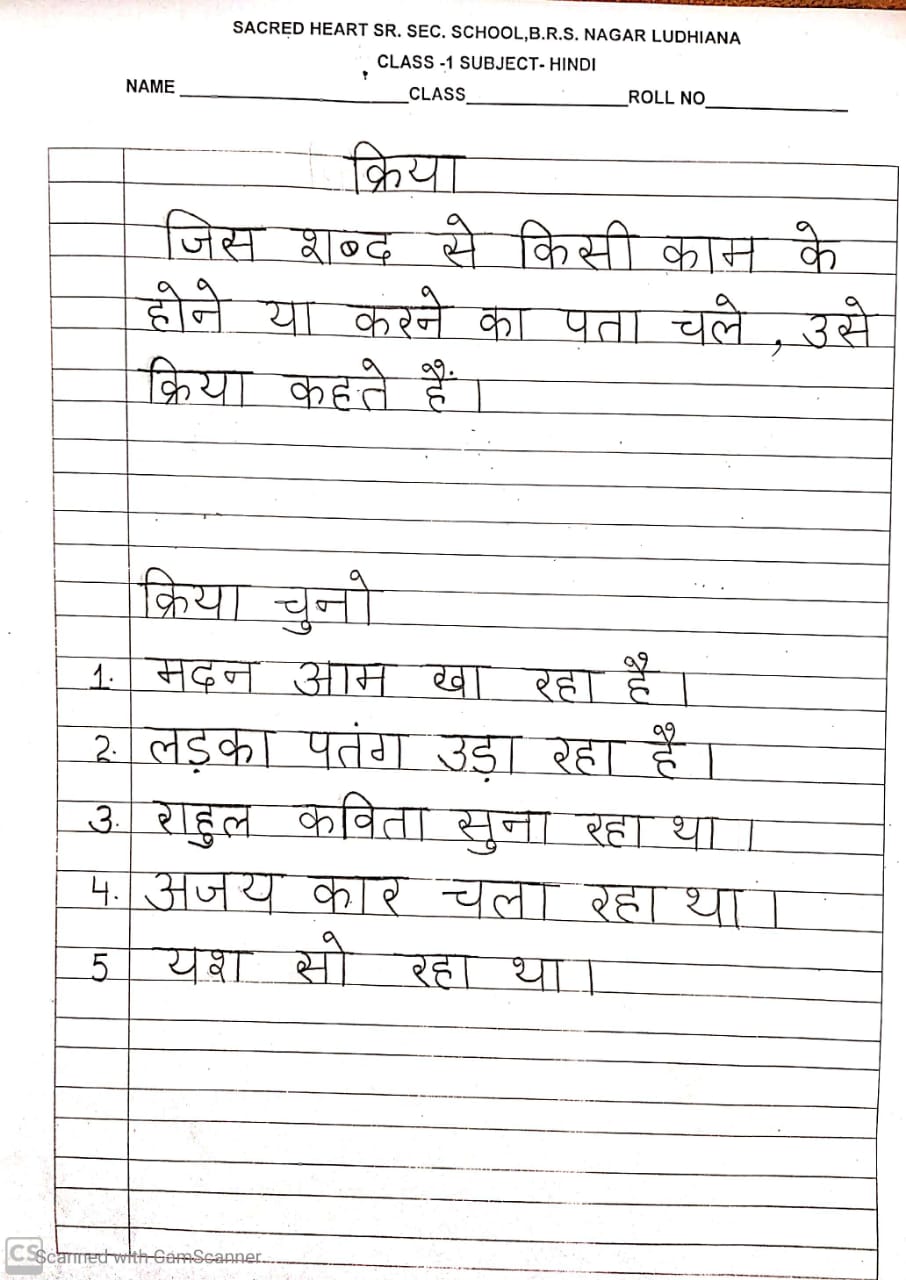 SACRED HEART SR. SEC. SCHOOL,B.R.S. NAGAR LUDHIANA
CLASS -1 SUBJECT- HINDI
NAME ____________ CLASS____________ROLL NO____________
क्रिया
जिस शब्द से किसी काम के
होने या करने का पता चले , उसे
क्रिया कहते हैं।
क्रिया चुनो
1. मदन आम खा रहा है।
2. लड़का पतंग उड़ा रहा है।
3. राहुल कविता सुना रहा था।
4. अजय कार चला रहा था।
5 यश सो रहा था।
CS Scanned with CamScanner